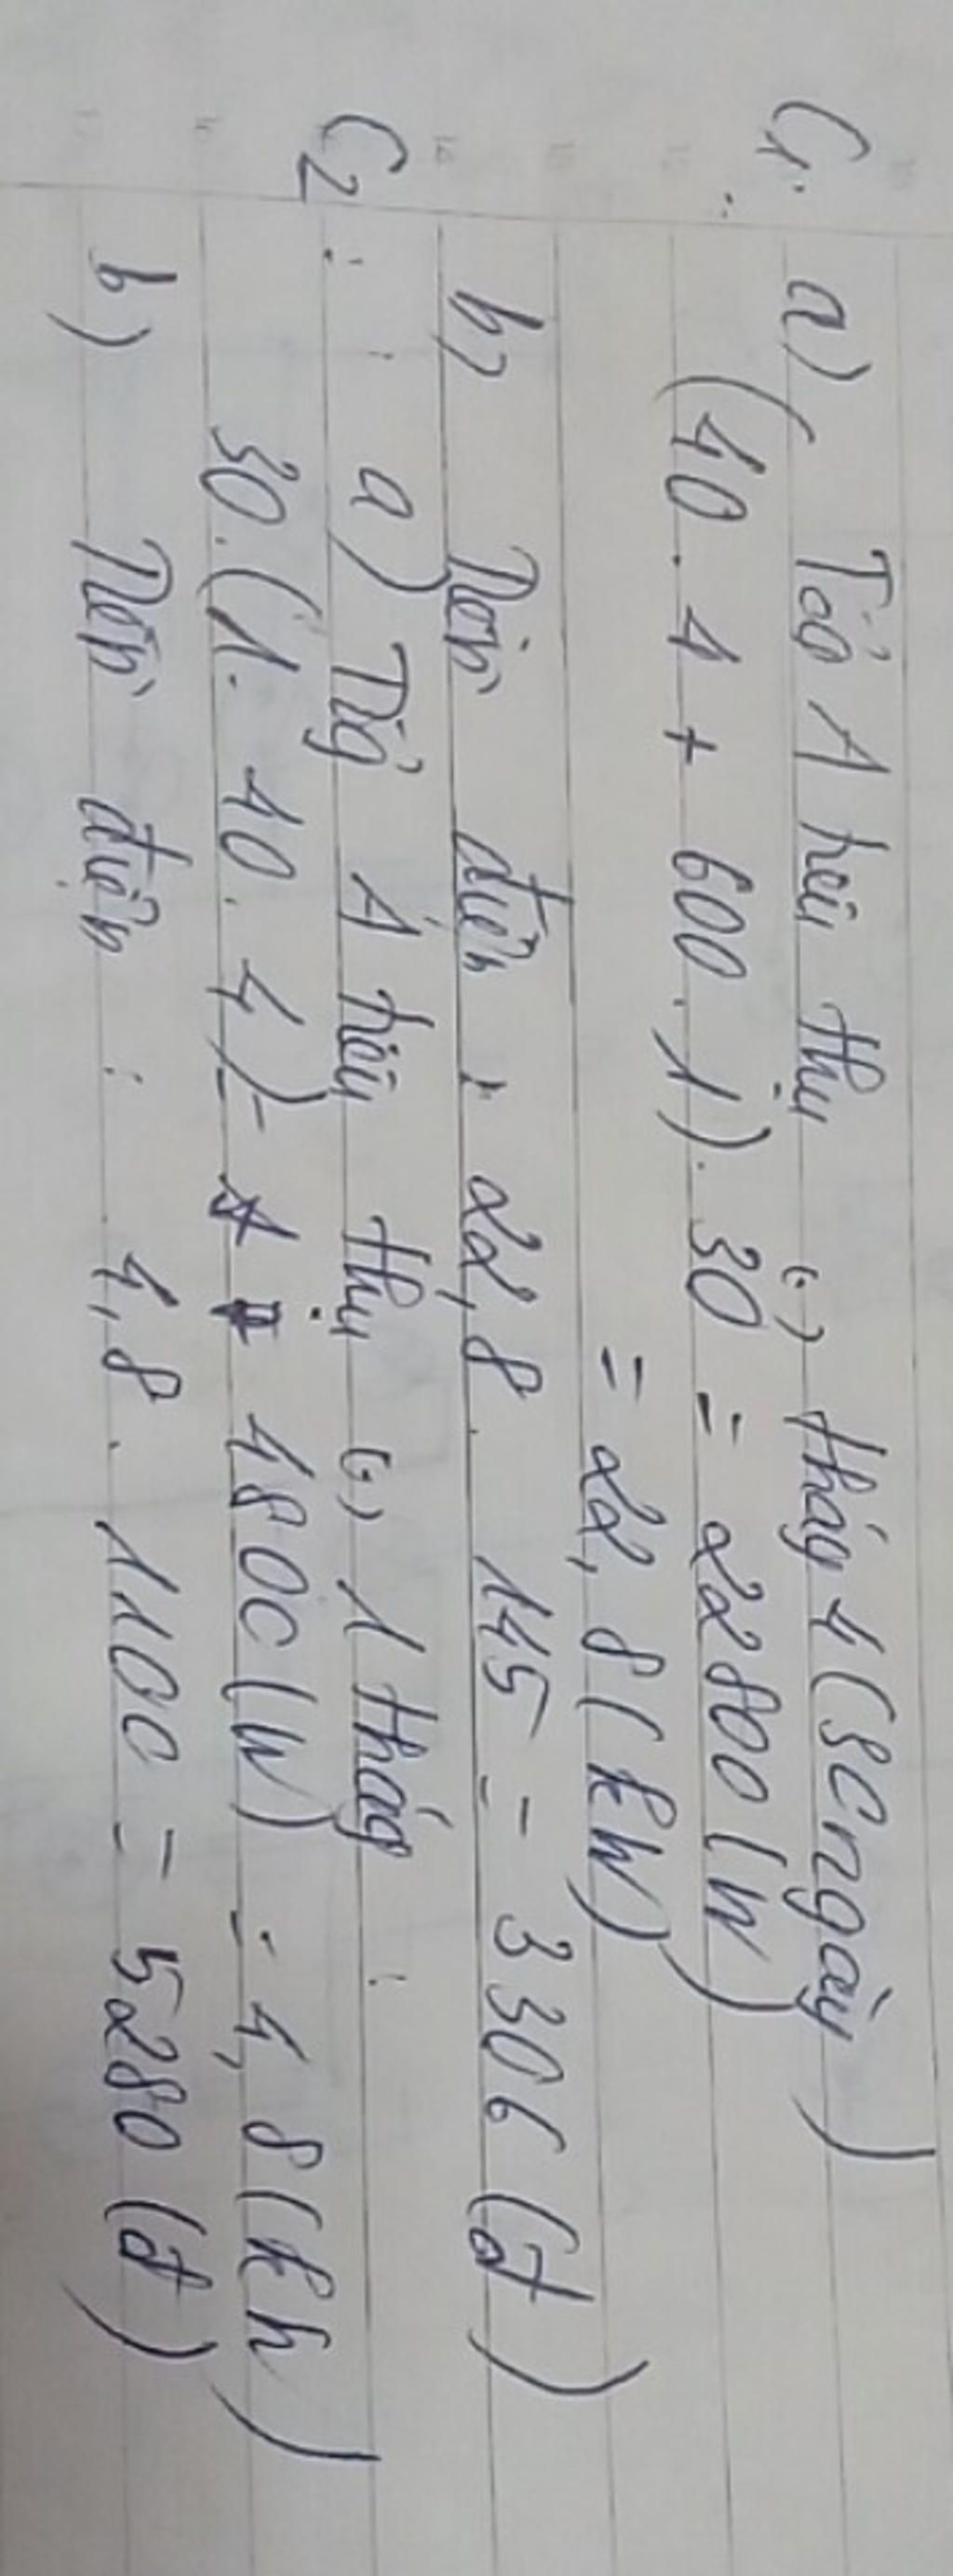 C1: a) Tổ A tiêu thụ (.) tháng 4 (30 ngày)
(40 . 4 + 600 . 1) . 30 = 22800 (W)
= 22,8 (kW)
b) Tiền điện : 22,8 . 145 = 3306 (đ)
C2 : a) Tổ A tiêu thụ (.) 1 tháng :
30 . (1 . 40 . 4) = 4800 (W) = 4,8 (kh)
b) Tiền điện : 4,8 . 1100 = 5280 (đ)